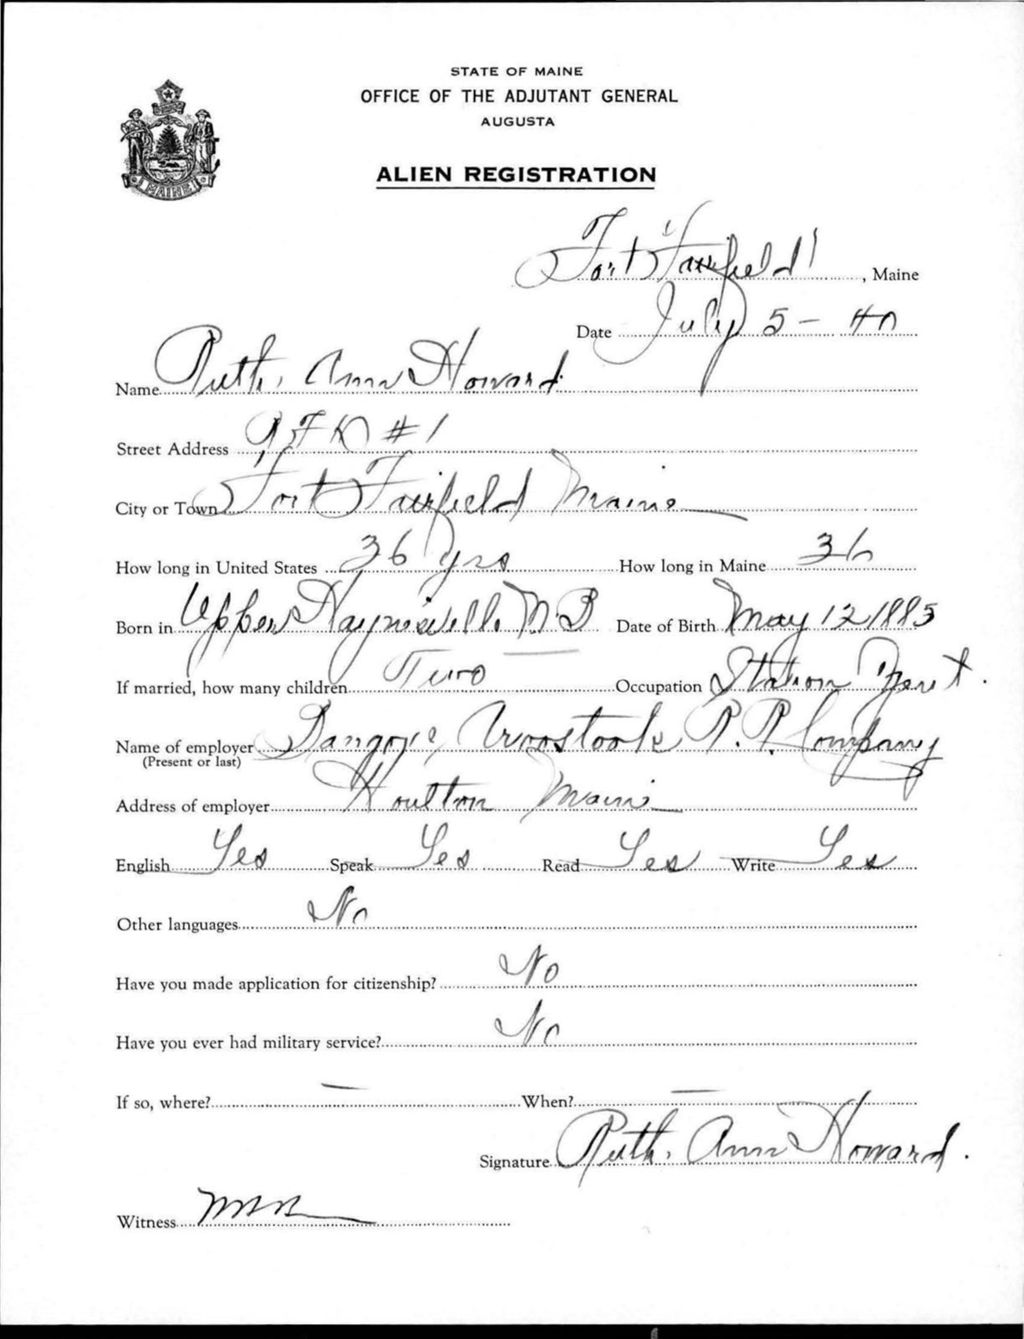 STATE OF MAINE
OFFICE OF THE ADJUTANT GENERAL
AUGUSTA
ALIEN REGISTRATION
MAINE
Fort Fairfield, Maine
Date July 5 - 40
Name Ruth. Ann Howard
Street Address RFD #1
City or Town Fort Fairfield Maine
How long in United States 36 yrs How long in Maine 36
Born in Upper N.B Date of Birth May 12 1885
If married, how many children Two Occupation Station Agent.
Name of employer Bangor, Aroostook R.R. Company
(Present or last)
Address of employer Houlton Maine
English Yes Speak Yes Read Yes Write Yes
Other languages No
Have you made application for citizenship? No
Have you ever had military service? No
If so, where? — When? —
Signature Ruth. Ann Howard.
Witness